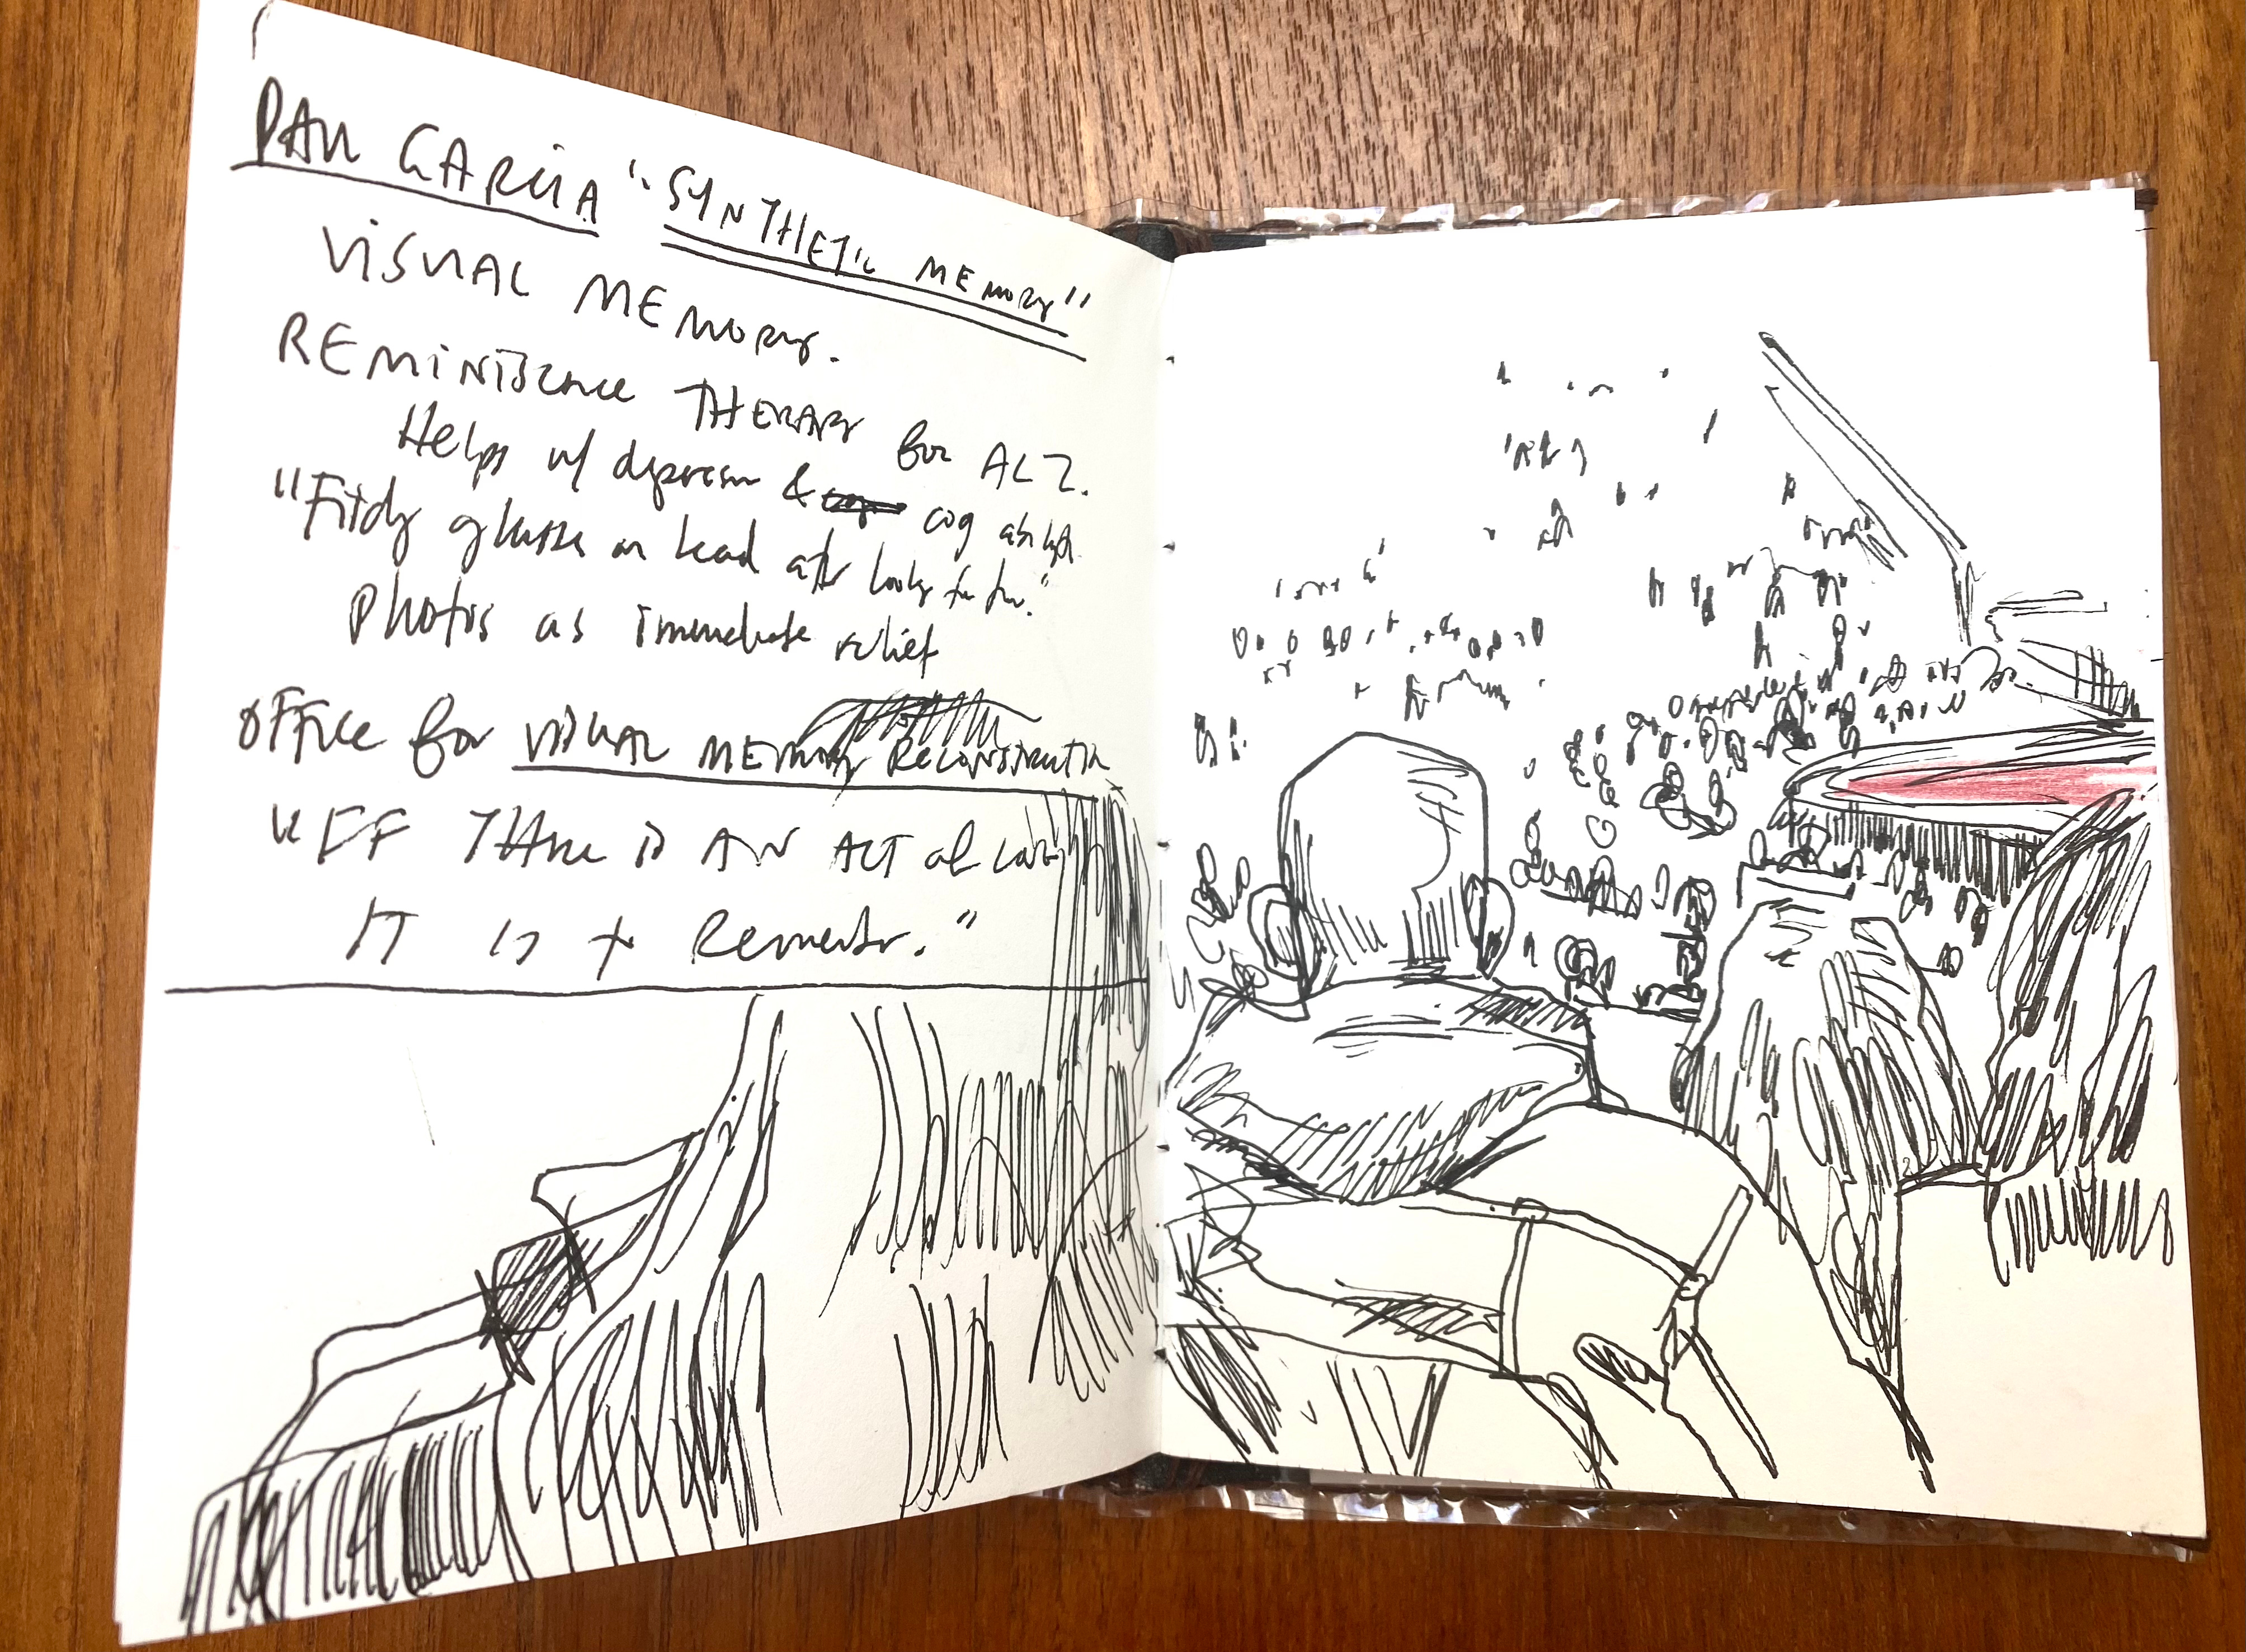 PAU GARCIA "SYNTHETIC MEMORY"
VISUAL MEMORY.
REMINISCENCE THERAPY for ALZ.
Helps w/ depression & cog
"Finding glasses on head after looking for them."
Photos as immediate relief
OFFICE for VISUAL MEMORY RECONSTRUCTION
"IF There is AN ACT of love
IT is to Remember."